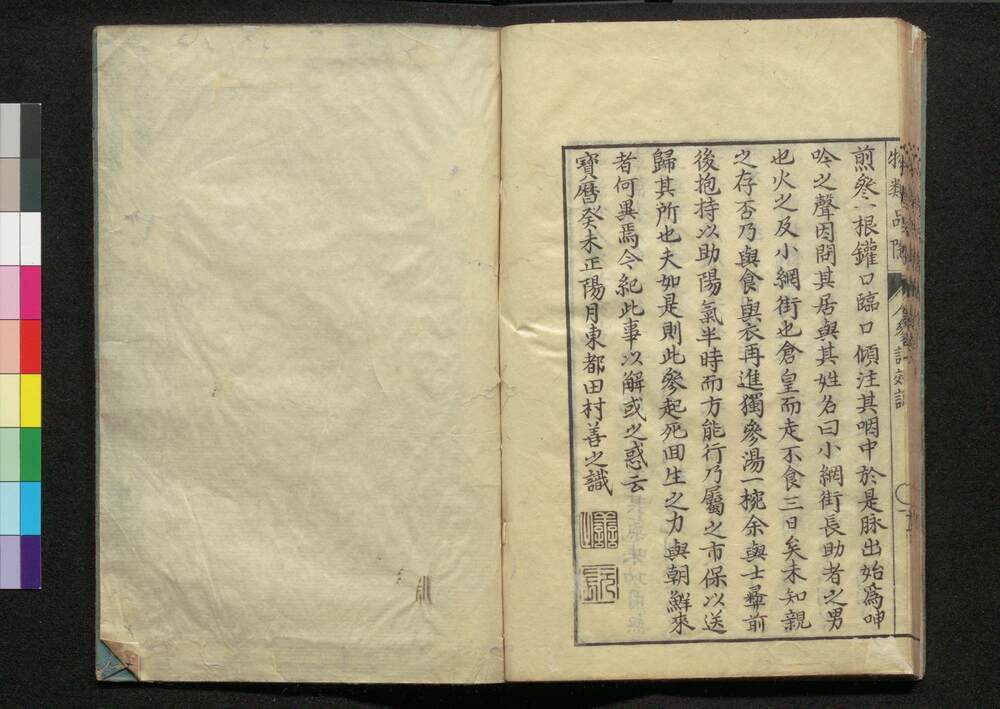 物類品隲 人參試效説
煎參一根鑵口臨口傾注其咽中於是脉出始爲呻
吟之聲因問其居與其姓名曰小網街長助者之男
也火之及小網街也倉皇而走不食三日矣未知親
之存否乃與食與衣再進獨參湯一椀余與士彝前
後抱持以助陽氣半時而方能行乃屬之市保以送
歸其所也夫如是則此參起死回生之力與朝鮮來
者何異焉今紀此事以解或之惑云
寶曆癸未正陽月東都田村善之識